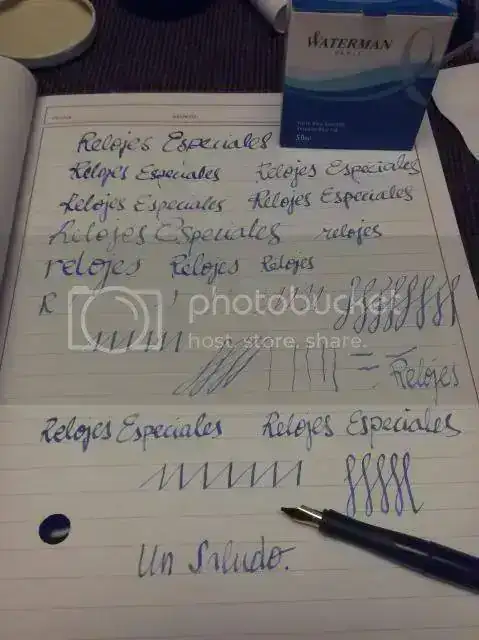 WATERMAN
PARIS
50ml
Relojes Especiales
Relojes Especiales Relojes Especiales
Relojes Especiales Relojes Especiales
Relojes Especiales relojes
relojes Relojes Relojes
R
photobucket
host. store. share.
Relojes
Relojes Especiales Relojes Especiales
Un Saludo.